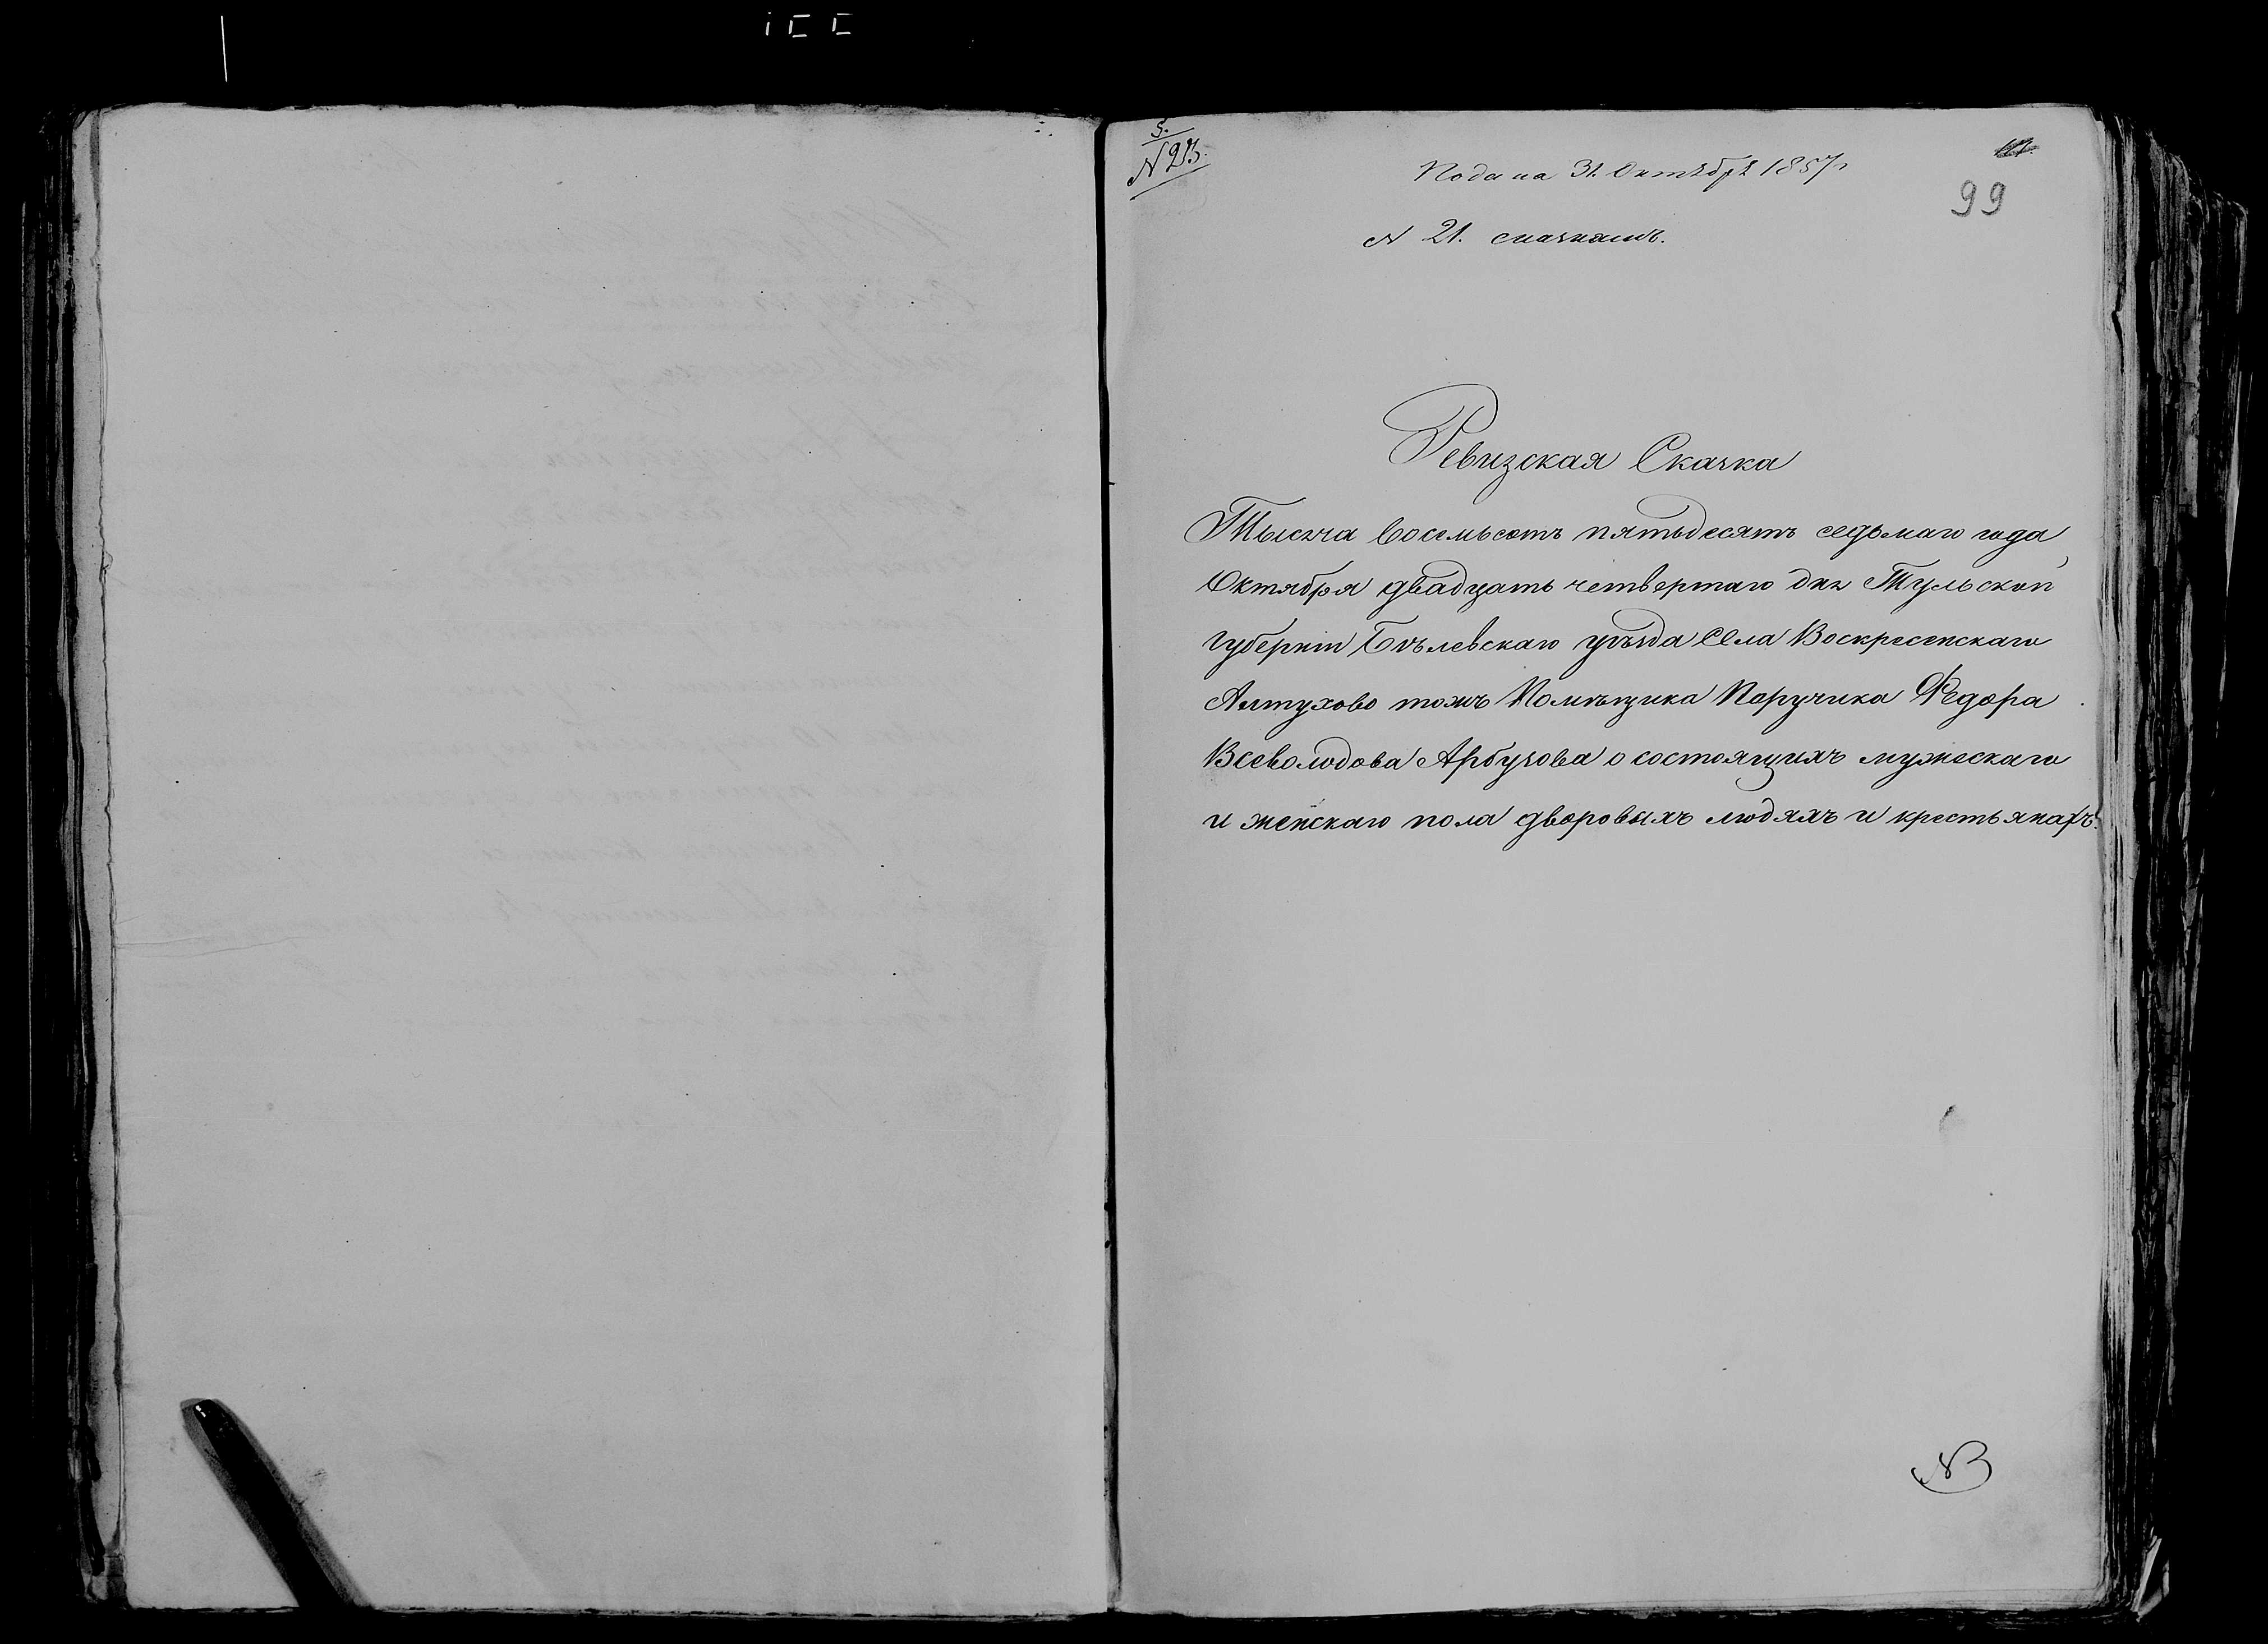 5.
N 23.
Подана 31. Октября 1857 г
99
N 21. сказкамъ.
Ревизская Сказка
Тысяча восемьсотъ пятьдесятъ седьмаго года
Октября двадцать четвертаго дня Тульской
губерніи Бѣлевскаго уѣзда Села Воскресенскаго
Алтухово тожъ Помѣщика Поручика Федора
Всеволодова Арбузова о состоящихъ мужескаго
и женскаго пола дворовыхъ людяхъ и крестьянахъ.